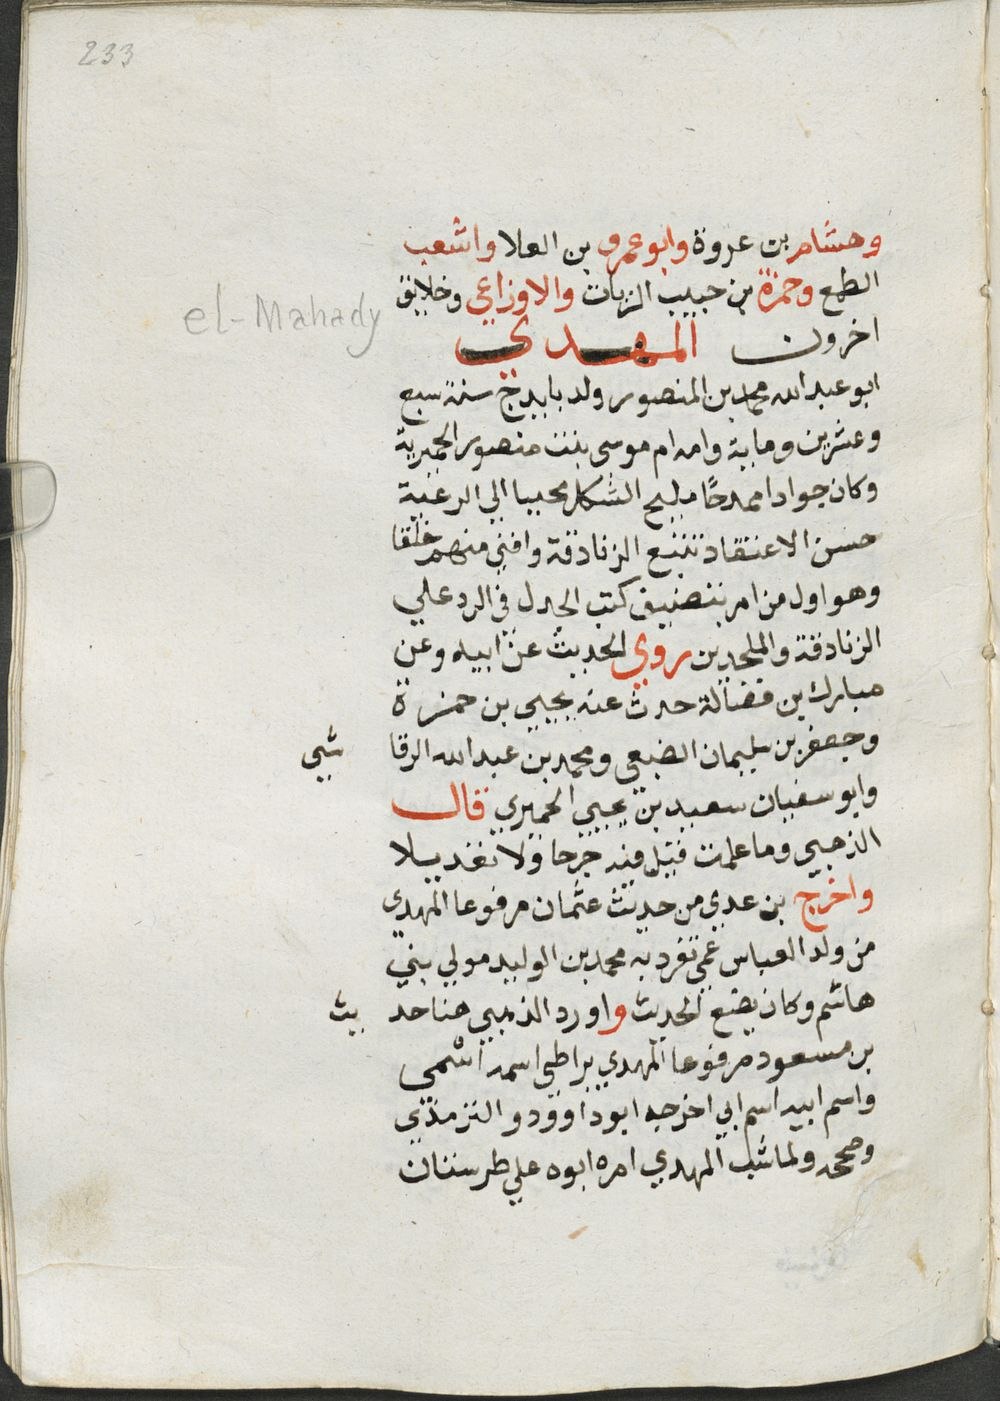 233
وهشام بن عروة وابو عمرو بن العلا واشعب
الطمع وحمزة بن حبيب الزيات والاوزاعي وخلايق
el-Mahady
اخرون المهدي
ابو عبد الله محمد بن المنصور ولد بايدج سنة سبع
وعشرين وماية وامه ام موسى بنت منصور الحميرية
وكان جوادا ممدحًا مليح الشكل محببا الي الرعية
حسن الاعتقاد تتبع الزنادقة وافني منهم خلقا
وهو اول من امر بتصنيف كتب الجدل في الرد علي
الزنادقة والملحدين روي الحديث عن ابيه وعن
مبارك بن فضالة حدث عنه يحيي بن حمزة
وجعفر بن سليمان الضبعي ومحمد بن عبد الله الرقا شي
وابو سفيان سعيد بن يحيي الحميري قال
الذهبي وما علمت قيل فيه جرحا ولا تعديلا
واخرج بن عدي من حديث عثمان مرفوعا المهدي
من ولد العباس عمي تفرد به محمد بن الوليد مولي بني
هاشم وكان يضع الحديث واورد الذهبي هنا حد يث
بن مسعود مرفوعا المهدي يواطي اسمه اسمي
واسم ابيه اسم ابي اخرجه ابو داوود والترمذي
وصححه ولما شب المهدي امره ابوه علي طرستان